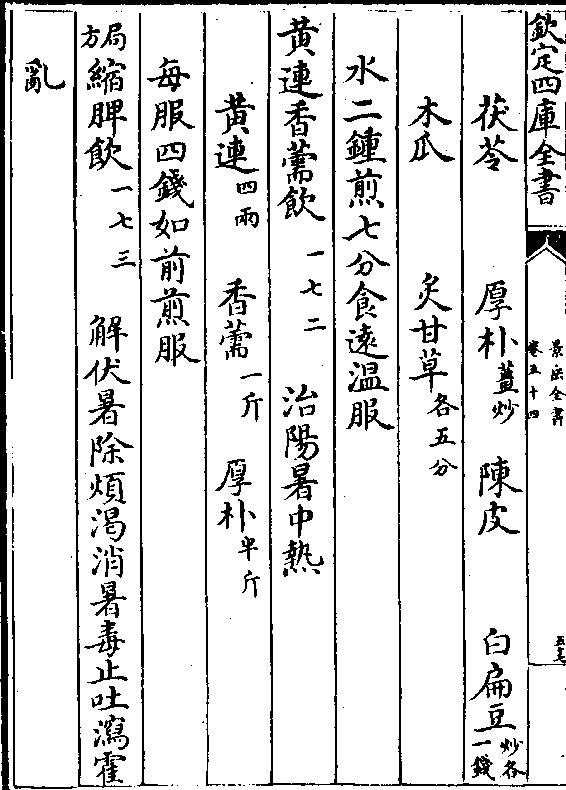 欽定四庫全書
景岳全書
卷五十四
茯苓 厚朴薑炒 陳皮 白扁豆炒各一錢
木瓜 炙甘草各五分
水二鍾煎七分食遠溫服
黃連香薷飲一七二 治陽暑中熱
黃連四兩 香薷一斤 厚朴半斤
每服四錢如前煎服
局方縮脾飲一七三 解伏暑除煩渴消暑毒止吐瀉霍
亂